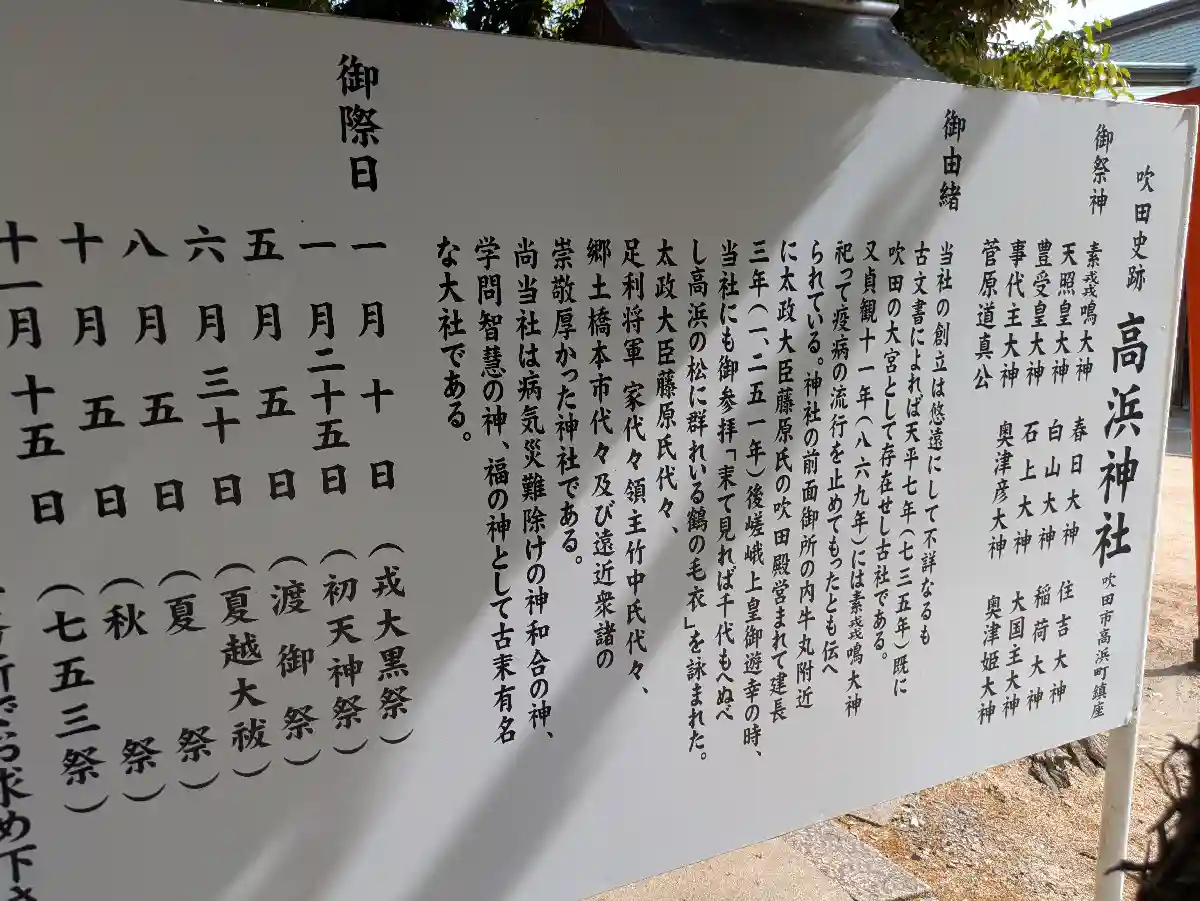 吹田史跡 高浜神社 吹田市高浜町鎮座
御祭神
素戔鳴大神 春日大神 住吉大神
天照皇大神 白山大神 稲荷大神
豊受皇大神 石上大神 大国主大神
事代主大神 奥津彦大神 奥津姫大神
菅原道真公
御由緒
当社の創立は悠遠にして不詳なるも
古文書によれば天平七年(七三五年)既に
吹田の大宮として存在せし古社である。
又貞観十一年(八六九年)には素戔鳴大神
祀って疫病の流行を止めてもったとも伝へ
られている。神社の前面御所の内牛丸附近
に太政大臣藤原氏の吹田殿営まれて建長
三年(一、二五一年)後嵯峨上皇御遊幸の時、
当社にも御参拝「来て見れば千代もへぬべ
し高浜の松に群れいる鶴の毛衣」を詠まれた。
太政大臣藤原氏代々、
足利将軍 家代々領主竹中氏代々、
郷土橋本市代々及び遠近衆諸の
崇敬厚かった神社である。
尚当社は病気災難除けの神和合の神、
学問智慧の神、福の神として古来有名
な大社である。
御際日
一月十日(戎大黒祭)
一月二十五日(初天神祭)
五月五日(渡御祭)
六月三十日(夏越大祓)
八月五日(夏祭)
十月五日(秋祭)
十一月十五日(七五三祭)
求め下さ